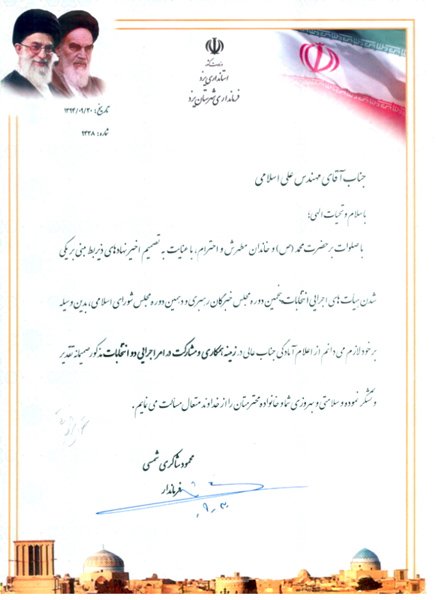 وزارت کشور
استانداری یزد
فرمانداری شهرستان یزد
تاریخ: ۱۳۹۴/۰۹/۳۰
شماره: ۲۴۳۸
جناب آقای مهندس علی اسلامی
با سلام و تحیات الهی؛
با صلوات بر حضرت محمد (ص) و خاندان مطهرش و احترام، با عنایت به تصمیم اخیر نهادهای ذیربط مبنی بر یکی
شدن هیات های اجرایی انتخابات پنجمین دوره مجلس خبرگان رهبری و دهمین دوره مجلس شورای اسلامی، بدین وسیله
بر خود لازم می دانم از اعلام آمادگی جناب عالی در زمینه همکاری و مشارکت در امر اجرایی دو انتخابات مذکور صمیمانه تقدیر
و تشکر نموده و سلامتی و بهروزی شما و خانواده محترمتان را از خداوند متعال مسالت می نمایم.
محمود شاکری شمسی
فرماندار